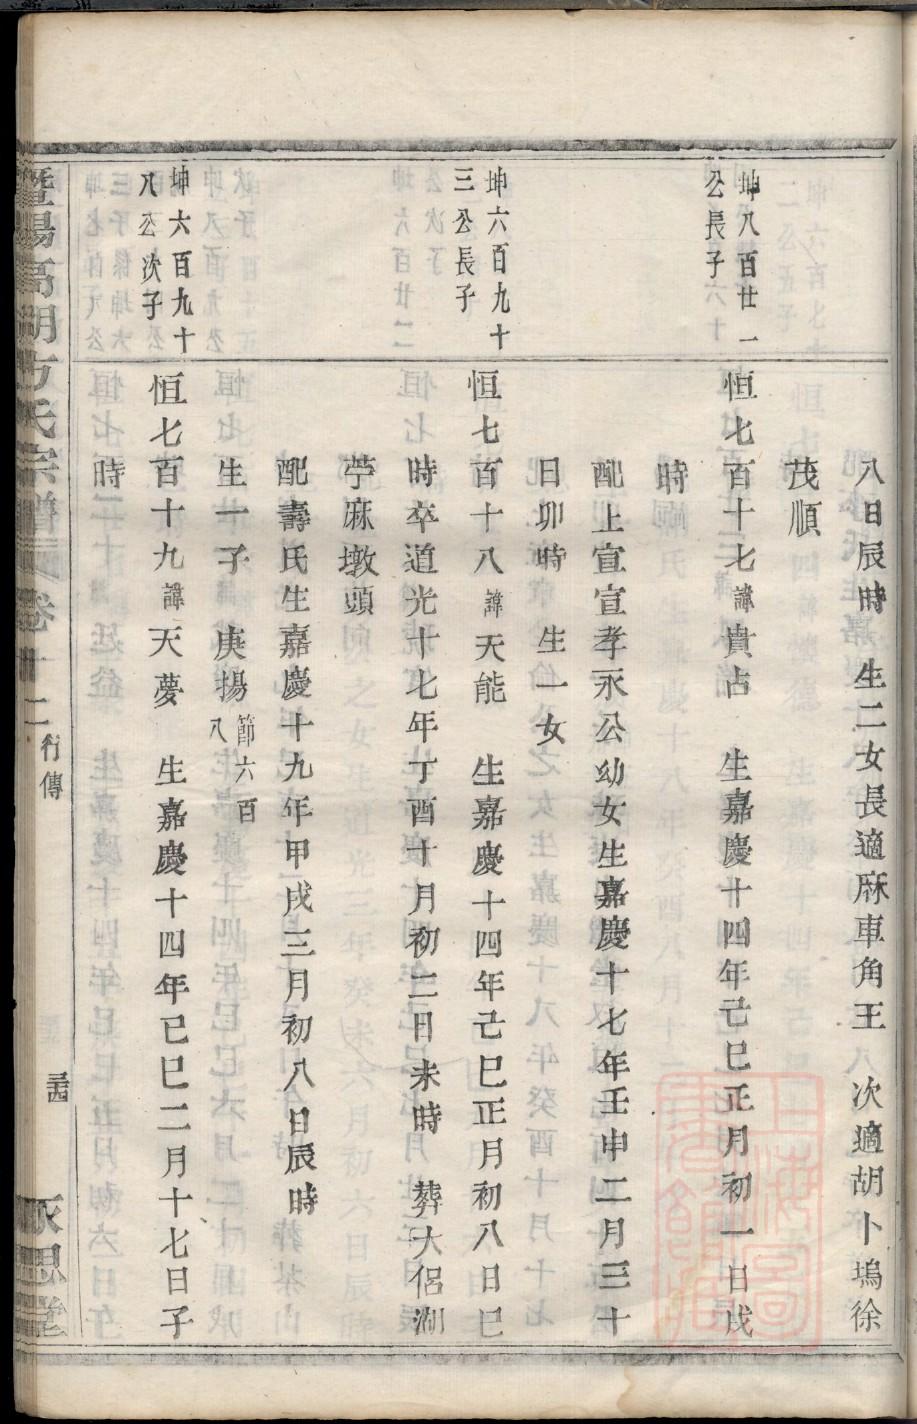 八日辰時　生二女長適麻車角王　次適胡卜塢徐
茂順
坤八百廿一
公長子
恒七百十七諱貴占　生嘉慶十四年己巳正月初一日戌
時
配上宣宣孝永公幼女生嘉慶十七年壬申二月三十
日卯時　生一女
坤六百九十
三公長子
恒七百十八諱天能　生嘉慶十四年己巳正月初八日巳
時卒道光十七年丁酉十月初二日未時　葬大侶湖
苧麻墩頭
配壽氏生嘉慶十九年甲戌三月初八日辰時
生一子　庚揚節六百八
坤六百九十
八公次子
恒七百十九諱天夢　生嘉慶十四年己巳二月十七日子
時
暨陽高湖方氏宗譜　卷十二　行傳　三十四　永思堂